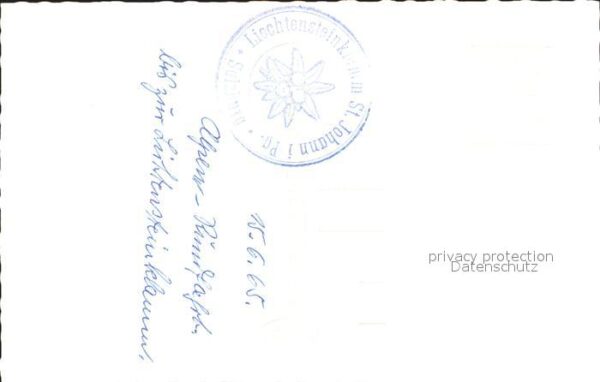 Liechtensteinklamm St. Johann i Pg. • Salzburg •
15.6.65.
Alpen-Rundfahrt.
Bis zur Lichtensteinklamm.
privacy protection
Datenschutz